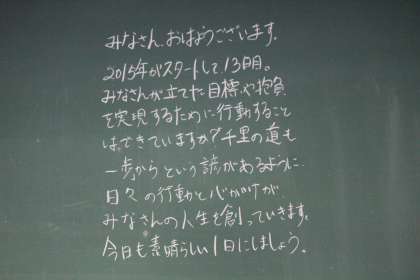 みなさん、おはようございます。
2015年がスタートして、13日目。
みなさんが立てた目標や抱負
を実現するために行動すること
は、できていますか?千里の道も
一歩からという諺があるように、
日々の行動と心がけが、
みなさんの人生を創っていきます。
今日も素晴らしい1日にしましょう。